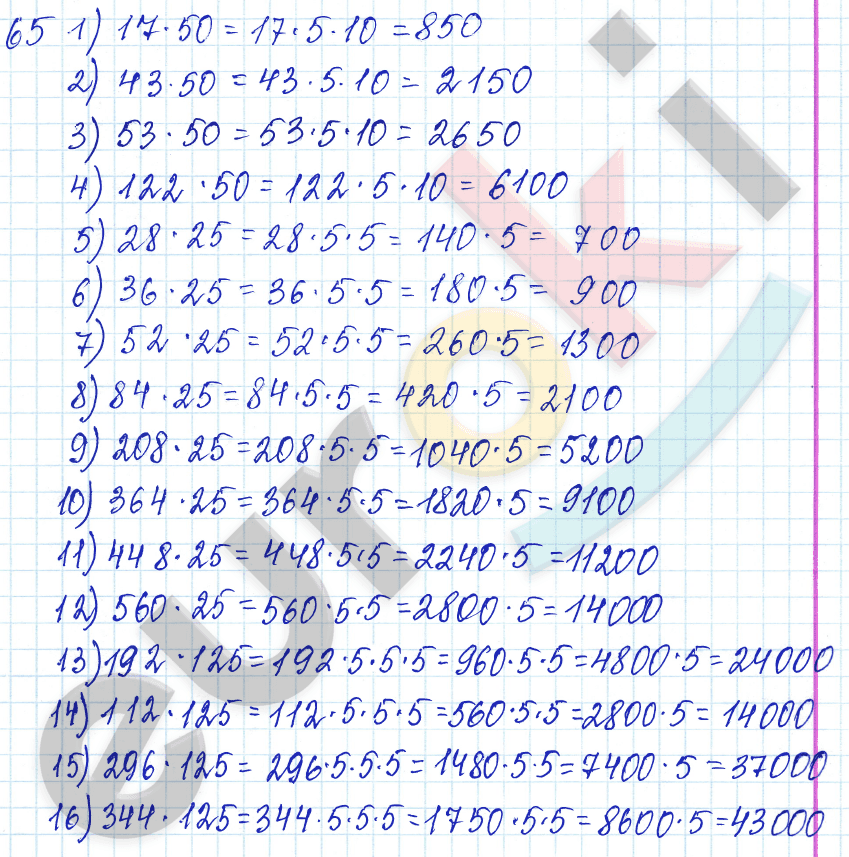 65 1) 17·50 = 17·5·10 = 850
2) 43·50 = 43·5·10 = 2150
3) 53·50 = 53·5·10 = 2650
4) 122·50 = 122·5·10 = 6100
5) 28·25 = 28·5·5 = 140·5 = 700
6) 36·25 = 36·5·5 = 180·5 = 900
7) 52·25 = 52·5·5 = 260·5 = 1300
8) 84·25 = 84·5·5 = 420·5 = 2100
9) 208·25 = 208·5·5 = 1040·5 = 5200
10) 364·25 = 364·5·5 = 1820·5 = 9100
11) 448·25 = 448·5·5 = 2240·5 = 11200
12) 560·25 = 560·5·5 = 2800·5 = 14000
13) 192·125 = 192·5·5·5 = 960·5·5 = 4800·5 = 24000
14) 112·125 = 112·5·5·5 = 560·5·5 = 2800·5 = 14000
15) 296·125 = 296·5·5·5 = 1480·5·5 = 7400·5 = 37000
16) 344·125 = 344·5·5·5 = 1750·5·5 = 8600·5 = 43000
euroki